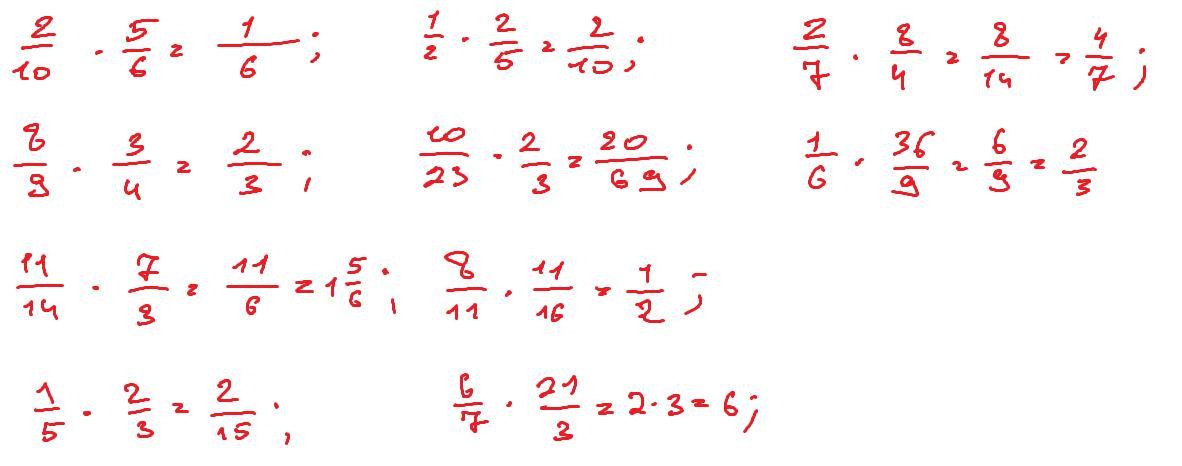 2/10 · 5/6 = 1/6; 1/2 · 2/5 = 2/10; 2/7 · 8/4 = 8/14 = 4/7;
8/9 · 3/4 = 2/3; 10/23 · 2/3 = 20/69; 1/6 · 36/9 = 6/9 = 2/3
11/14 · 7/3 = 11/6 = 1 5/6; 8/11 · 11/16 = 1/2;
1/5 · 2/3 = 2/15; 6/7 · 21/3 = 2·3 = 6;